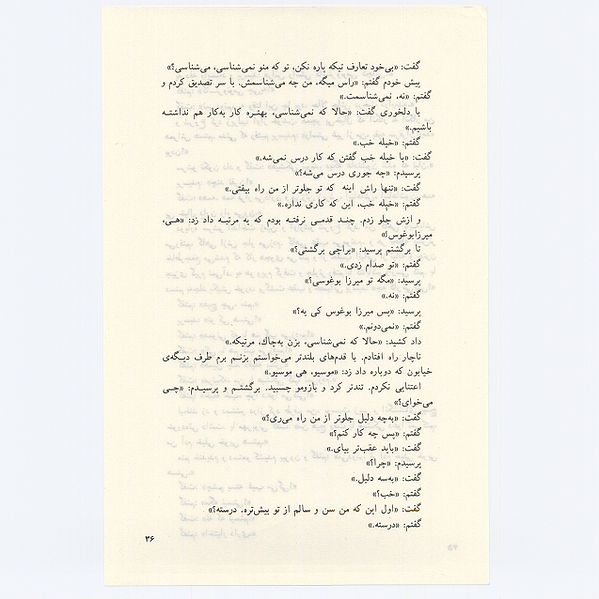 گفت: «بی‌خود تعارف تیکه پاره نکن، تو که منو نمی‌شناسی، می‌شناسی؟»
پیش خودم گفتم: «راس میگه، من چه می‌شناسمش. با سر تصدیق کردم و
گفتم: «نه، نمی‌شناسمت.»
با دلخوری گفت: «حالا که نمی‌شناسی، بهتره کار به‌کار هم نداشته
باشیم.»
گفتم: «خیله خب.»
گفت: «با خیله خب گفتن که کار درس نمی‌شه.»
پرسیدم: «چه جوری درس می‌شه؟»
گفت: «تنها راش اینه که تو جلوتر از من راه بیفتی.»
گفتم: «خیله خب، این که کاری نداره.»
و ازش جلو زدم. چند قدمی نرفته بودم که یه مرتبه داد زد: «هی،
میرزابوغوس!»
تا برگشتم پرسید: «براچی برگشتی؟»
گفتم: «تو صدام زدی.»
پرسید: «مگه تو میرزا بوغوسی؟»
گفتم: «نه.»
پرسید: «پس میرزا بوغوس کی یه؟»
گفتم: «نمی‌دونم.»
داد کشید: «حالا که نمی‌شناسی، بزن به‌چاک، مرتیکه.»
ناچار راه افتادم. با قدم‌های بلندتر می‌خواستم بزنم برم طرف دیگه‌ی
خیابون که دوباره داد زد: «موسیو، هی موسیو.»
اعتنایی نکردم. تندتر کرد و بازومو چسبید. برگشتم و پرسیدم: «چی
می‌خوای؟»
گفت: «به‌چه دلیل جلوتر از من راه می‌ری؟»
گفتم: «پس چه کار کنم؟»
گفت: «باید عقب‌تر بیای.»
پرسیدم: «چرا؟»
گفت: «به‌سه دلیل.»
گفتم: «خب؟»
گفت: «اول این که من سن و سالم از تو بیش‌تره. درسته؟»
گفتم: «درسته.»
۳۶